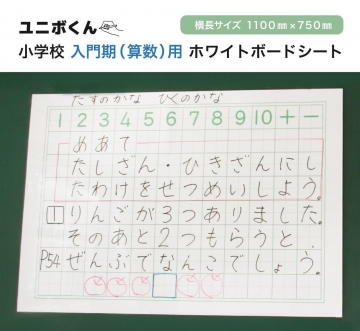 ユニボくん
横長サイズ 1100㎜×750㎜
小学校 入門期(算数)用 ホワイトボードシート
たすのかな ひくのかな
1 2 3 4 5 6 7 8 9 10 + −
めあて
たしざん・ひきざんにし
たわけをせつめいしよう。
1 りんごが3つありました。
そのあと2つもらうと、
P54 ぜんぶでなんこでしょう。